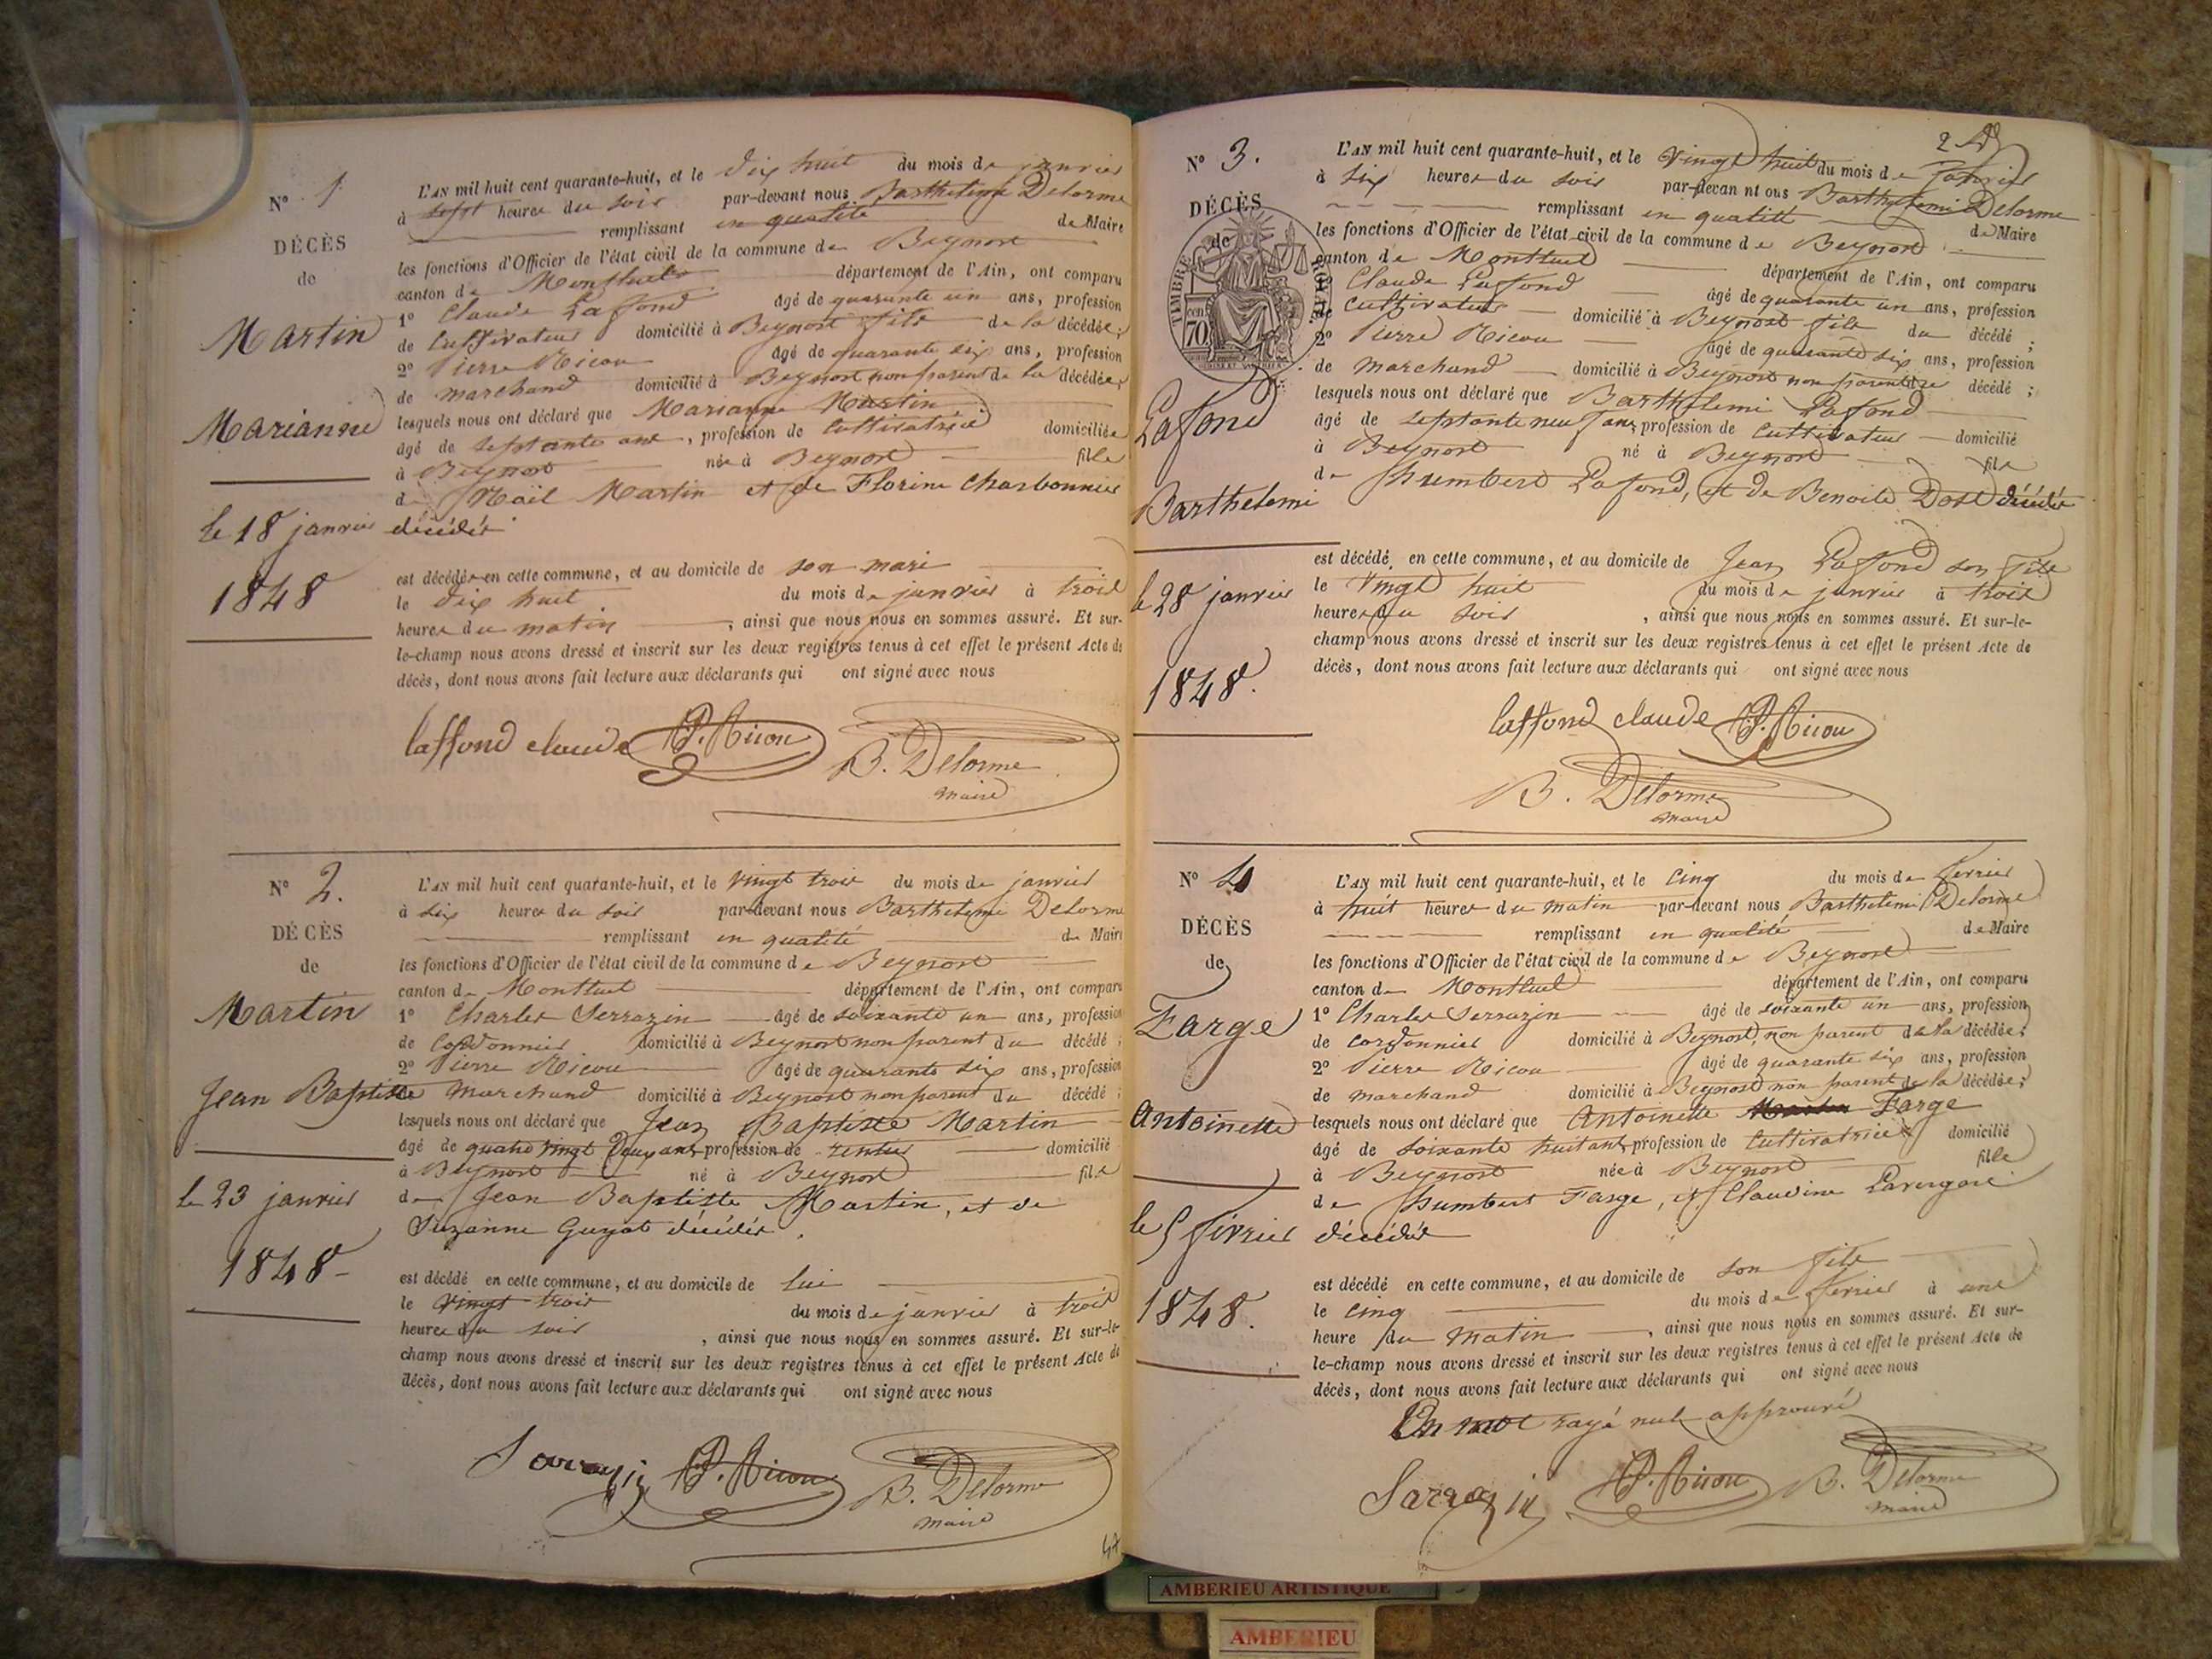 N° 1
DÉCÈS
de
Martin
Marianne
le 18 janvier
1848
L'AN mil huit cent quarante-huit, et le dix huit du mois de janvier
à sept heures du soir par-devant nous Barthelemi Delorme
remplissant en qualité de Maire
les fonctions d'Officier de l'état civil de la commune de Beynost
canton de Montluel département de l'Ain, ont comparu
1° Claude Lafond âgé de quarante un ans, profession
de Cultivateur domicilié à Beynost fils de la décédée;
2° Pierre Nicou âgé de quarante six ans, profession
de marchand domicilié à Beynost non parent de la décédée;
lesquels nous ont déclaré que Marianne Martin
âgé de septante ans, profession de Cultivatrice domiciliée
à Beynost née à Beynost fille
de Martin et de Florine Charbonnier
décédés
est décédée en cette commune, et au domicile de son mari
le dix huit du mois de janvier à trois
heures du matin, ainsi que nous nous en sommes assuré. Et sur-
le-champ nous avons dressé et inscrit sur les deux registres tenus à cet effet le présent Acte de
décès, dont nous avons fait lecture aux déclarants qui ont signé avec nous
laffond claude P. Nicou B. Delorme
maire
N° 2.
DÉCÈS
de
Martin
Jean Baptiste
le 23 janvier
1848
L'AN mil huit cent quarante-huit, et le vingt trois du mois de janvier
à six heures du soir par-devant nous Barthelemi Delorme
remplissant en qualité de Maire
les fonctions d'Officier de l'état civil de la commune de Beynost
canton de Montluel département de l'Ain, ont comparu
1° Charles Serrazin âgé de soixante un ans, profession
de Cordonnier domicilié à Beynost non parent du décédé;
2° Pierre Nicou âgé de quarante six ans, profession
marchand domicilié à Beynost non parent du décédé;
lesquels nous ont déclaré que Jean Baptiste Martin
âgé de quatre vingt deux ans, profession de rentier domicilié
à Beynost né à Beynost fils
de Jean Baptiste Martin, et de
Suzanne Guyot décédés.
est décédé en cette commune, et au domicile de lui
le vingt trois du mois de janvier à trois
heures du soir, ainsi que nous nous en sommes assuré. Et sur-le-
champ nous avons dressé et inscrit sur les deux registres tenus à cet effet le présent Acte de
décès, dont nous avons fait lecture aux déclarants qui ont signé avec nous
Sarrazin P. Nicou B. Delorme
maire
2
N° 3.
DÉCÈS
de
TIMBRE ROYAL
70 cen
Lafond
Barthelemi
le 28 janvier
1848.
L'AN mil huit cent quarante-huit, et le vingt huit du mois de Janvier
à six heures du soir par-devan nt ous Barthelemi Delorme
remplissant en qualité de Maire
les fonctions d'Officier de l'état civil de la commune de Beynost
canton de Montluel département de l'Ain, ont comparu
Claude Lafond âgé de quarante un ans, profession
de Cultivateur domicilié à Beynost fils du décédé;
2° Pierre Nicou âgé de quarante six ans, profession
de marchand domicilié à Beynost non parent du décédé;
lesquels nous ont déclaré que Barthelemi Lafond
âgé de septante neuf ans, profession de Cultivateur domicilié
à Beynost né à Beynost fils
de humbert Lafond, et de Benoite Dost décédés
est décédé en cette commune, et au domicile de Jean Lafond son fils
le Vingt huit du mois de janvier à trois
heures du soir, ainsi que nous nous en sommes assuré. Et sur-le-
champ nous avons dressé et inscrit sur les deux registres tenus à cet effet le présent Acte de
décès, dont nous avons fait lecture aux déclarants qui ont signé avec nous
laffond claude P. Nicou
B. Delorme
maire
N° 4
DÉCÈS
de
Farge
Antoinette
le 5 février
1848.
L'AN mil huit cent quarante-huit, et le cinq du mois de fevrier
à huit heures du matin par-devant nous Barthelemi Delorme
remplissant en qualité de Maire
les fonctions d'Officier de l'état civil de la commune de Beynost
canton de Montluel département de l'Ain, ont comparu
1° Charles Serrazin âgé de soixante un ans, profession
de cordonnier domicilié à Beynost, non parent de la décédée;
2° Pierre Nicou âgé de quarante six ans, profession
de marchand domicilié à Beynost non parent de la décédée;
lesquels nous ont déclaré que Antoinette Farge
âgé de soixante huit ans, profession de Cultivatrice domicilié
à Beynost née à Beynost fille
de humbert Farge, et Claudine
décédés
est décédé en cette commune, et au domicile de son fils
le cinq du mois de fevrier à une
heure du matin, ainsi que nous nous en sommes assuré. Et sur-
le-champ nous avons dressé et inscrit sur les deux registres tenus à cet effet le présent Acte de
décès, dont nous avons fait lecture aux déclarants qui ont signé avec nous
Un mot rayé nul approuvé
Sarrazin P. Nicou B. Delorme
maire
AMBERIEU ARTISTIQUE
AMBERIEU